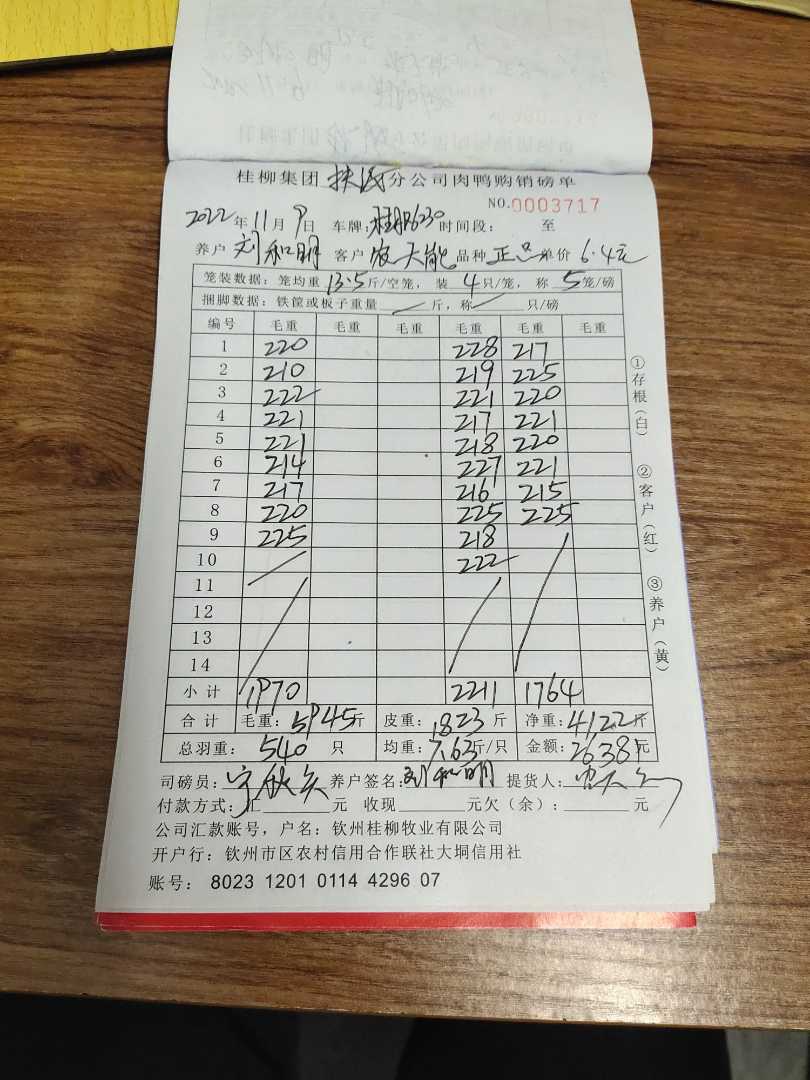 桂柳集团 扶民 分公司肉鸭购销磅单
NO.0003717
2022年11月9日 车牌: 630 时间段: 至
养户 刘和明 客户 农天能 品种 正品 单价 6.4元
笼装数据: 笼均重 13.5 斤/空笼, 装 4 只/笼, 称 5 笼/磅
捆脚数据: 铁筐或板子重量 斤, 称 只/磅
编号 毛重 毛重 毛重 毛重 毛重 毛重
1 220 228 217
2 210 219 225
3 222 221 220
4 221 217 221
5 221 218 220
6 214 227 221
7 217 216 215
8 220 225 225
9 225 218
10 222
11
12
13
14
小计 1970 2211 1764
合计 毛重: 5945斤 皮重: 1823斤 净重: 4122斤
总羽重: 540 只 均重: 7.63斤/只 金额: 26381元
司磅员: 养户签名: 刘和明 提货人:
付款方式: 汇 元 收现 元欠(余): 元
公司汇款账号, 户名: 钦州桂柳牧业有限公司
开户行: 钦州市区农村信用合作联社大垌信用社
账号: 8023 1201 0114 4296 07
①存根(白)
②客户(红)
③养户(黄)